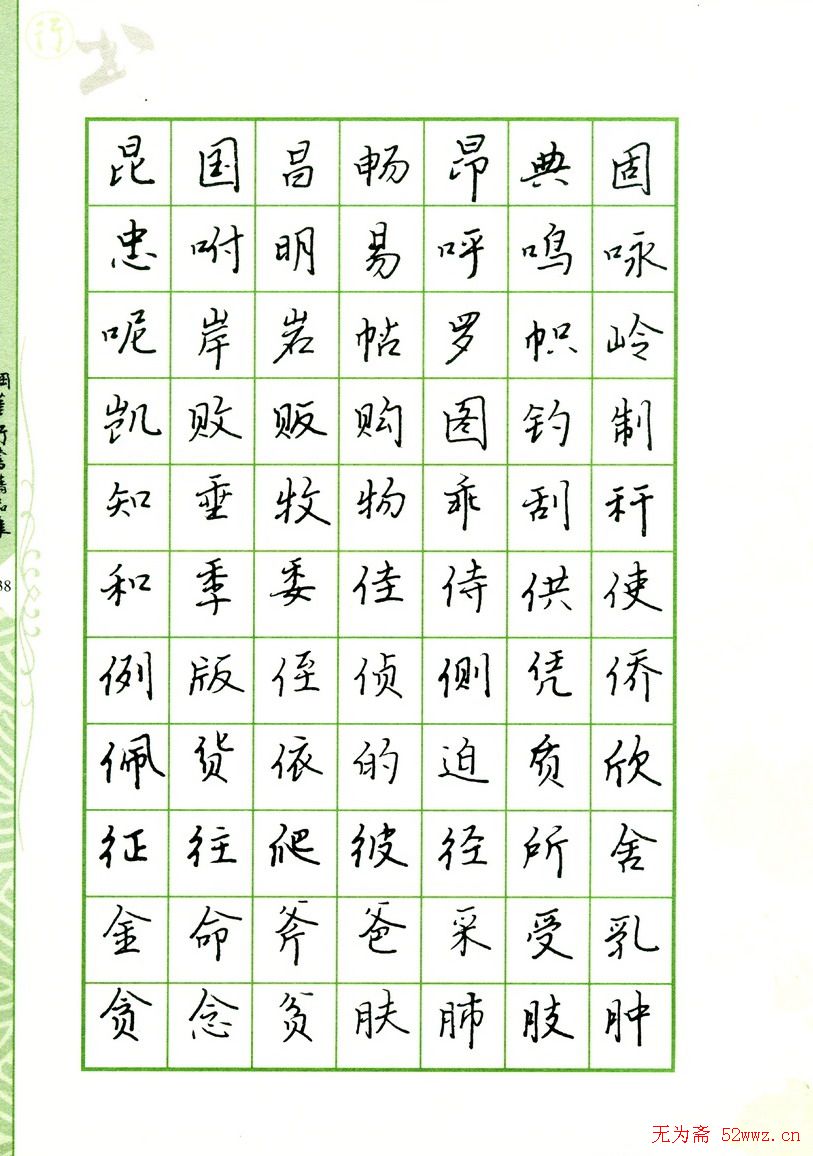 行书
昆国昌畅昂典固
忠咐明易呼鸣咏
呢岸岩帖罗帜岭
凯败贩购图钓制
知垂牧物乖刮秆
和季委佳侍供使
例版侄侦侧凭侨
佩货依的迫质欣
征往爬彼径所舍
金命斧爸采受乳
贪念贫肤肺肢肿
38
无为斋 52wwz.cn